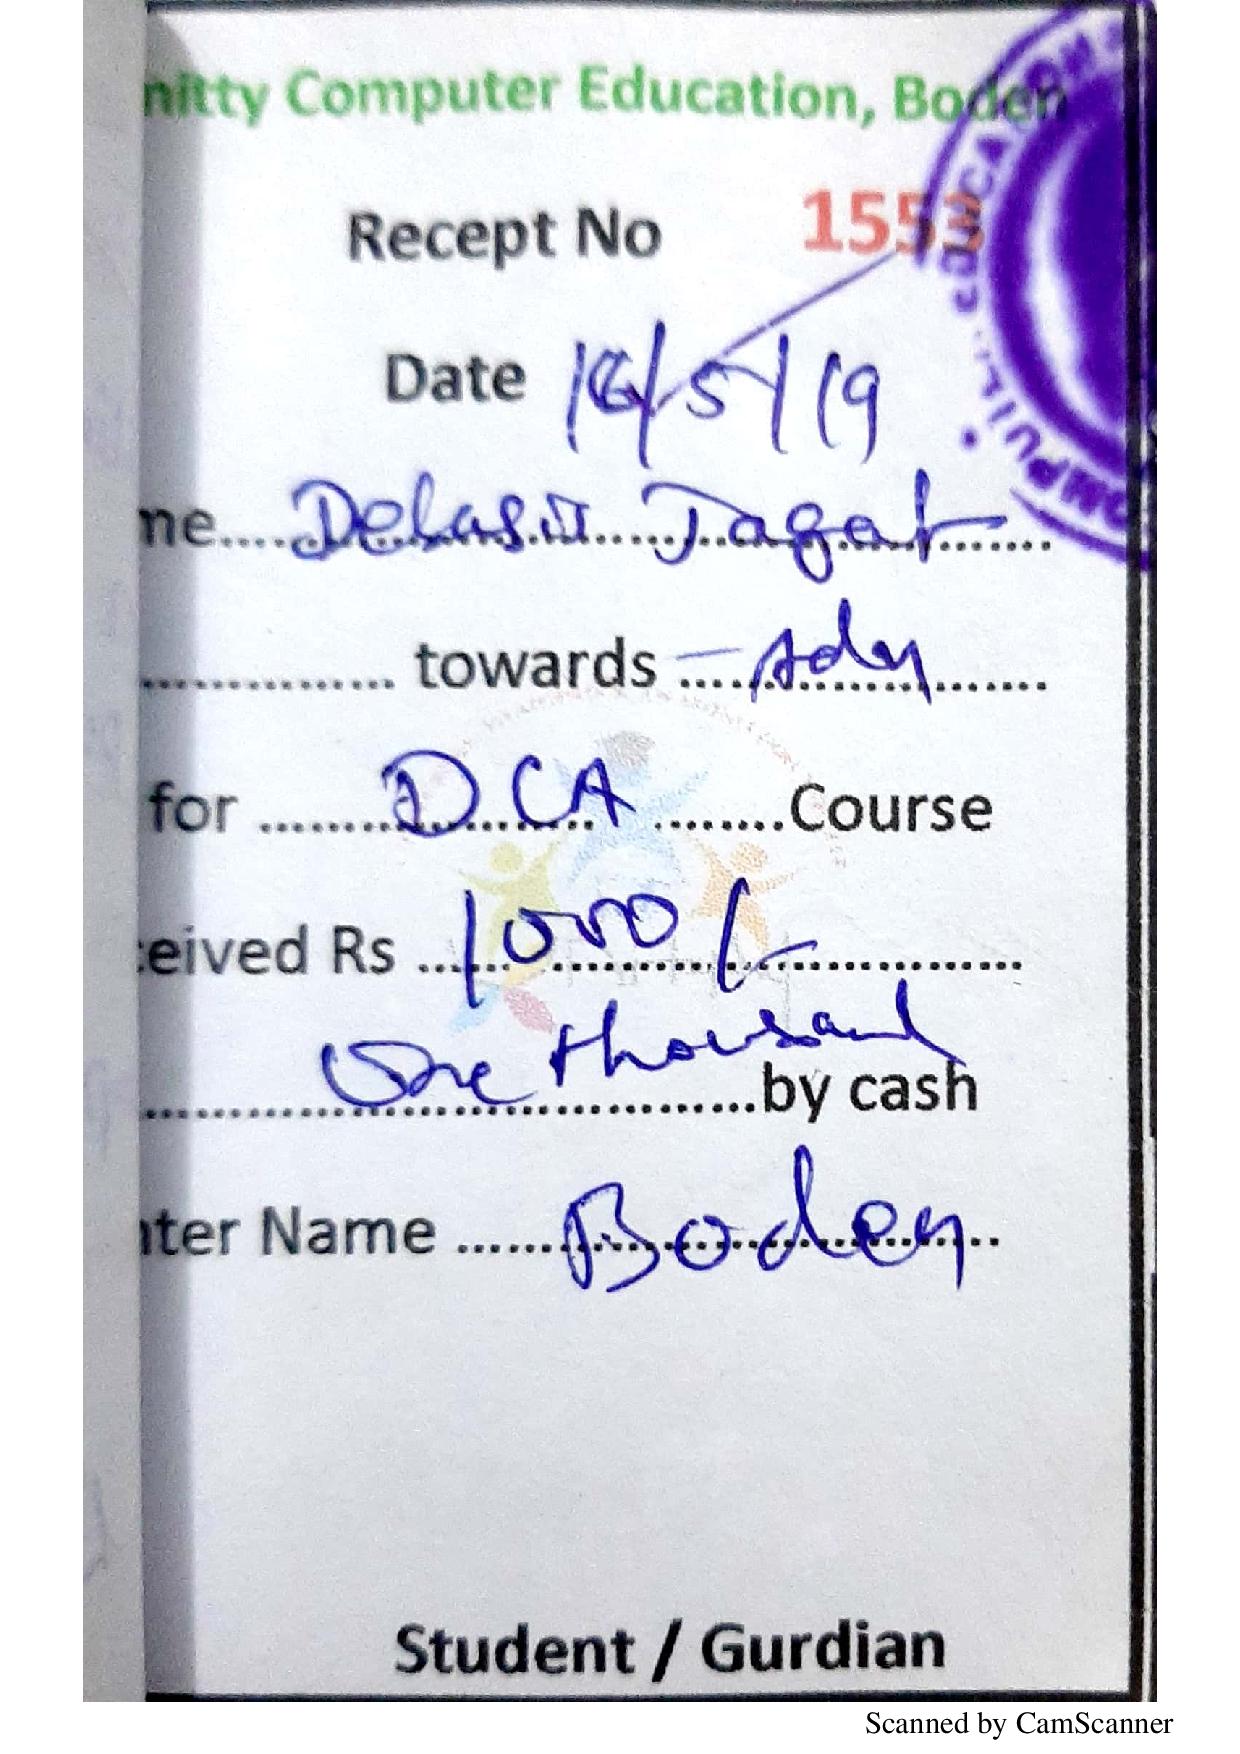 nitty Computer Education, Boden
Recept No 1553
Date 16/5/19
me.... Debasis Jagat
.... towards - Adm
for .... D.CA ....Course
ceived Rs .... 1000/-
One thousand ....by cash
nter Name .... Boden
Student / Gurdian
Scanned by CamScanner